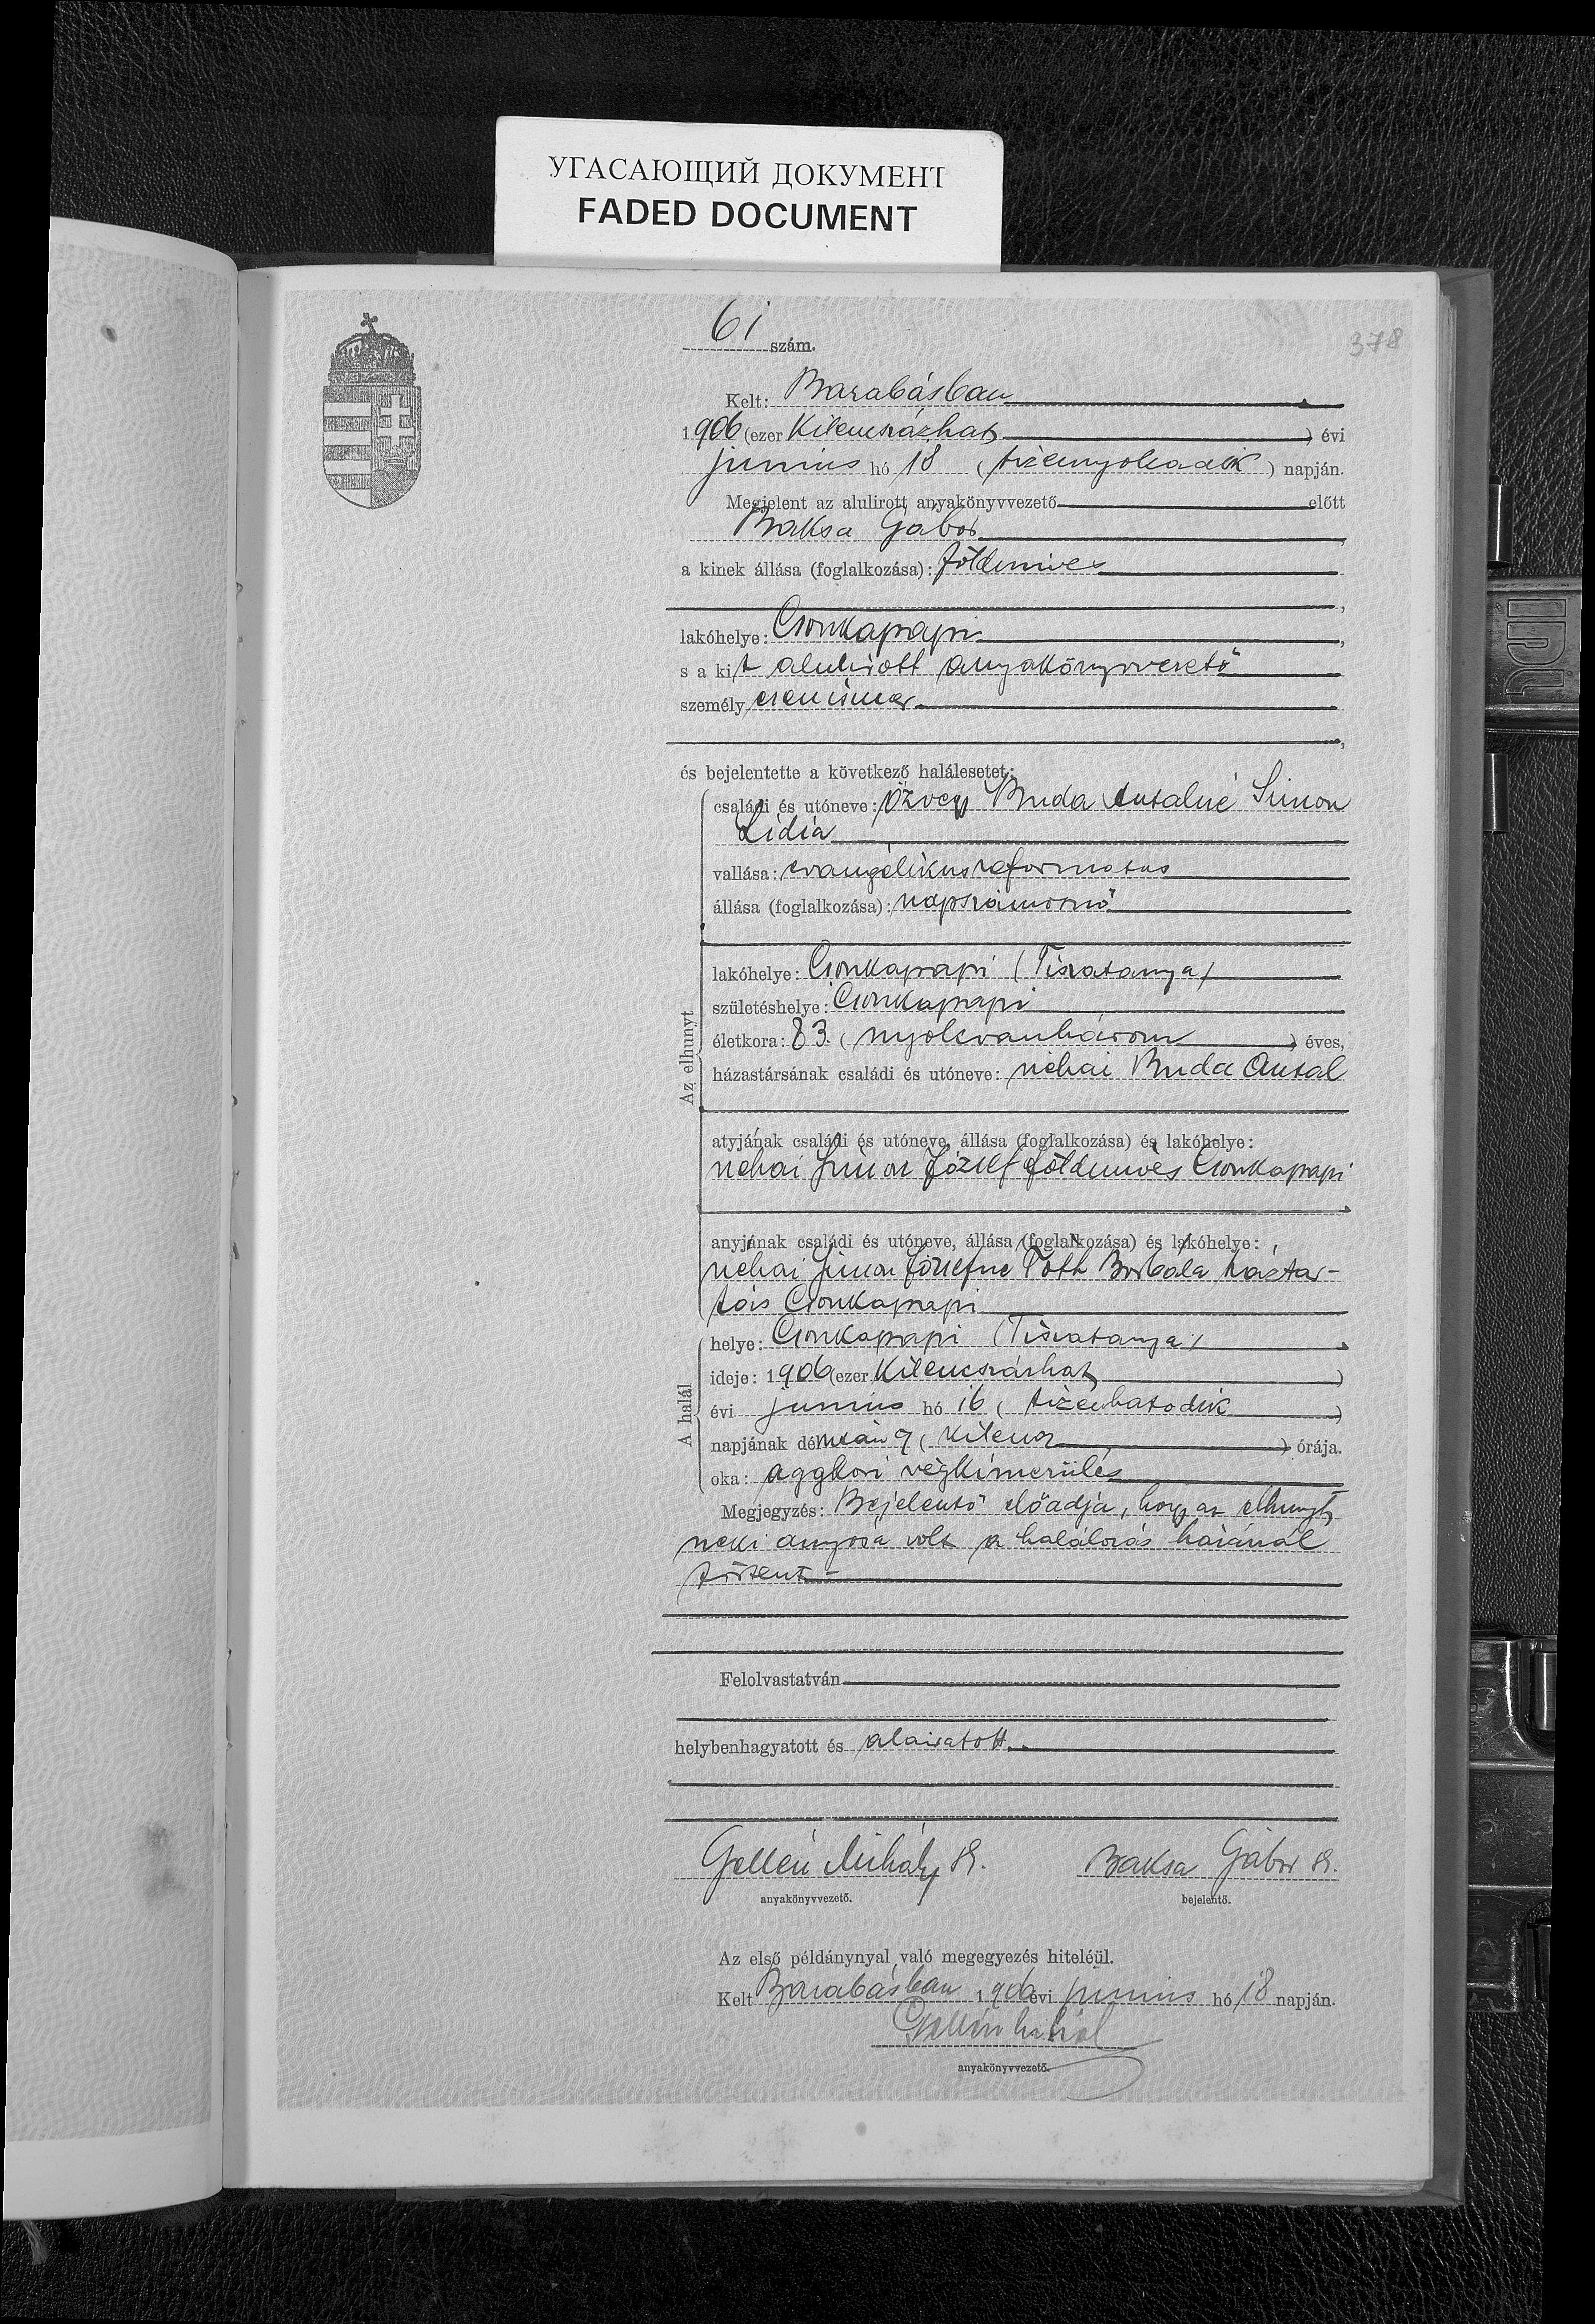 УГАСАЮЩИЙ ДОКУМЕНТ
FADED DOCUMENT
61 szám.
378
Kelt: Barabásban
1906 (ezer kilencszázhat) évi
junius hó 18 (tizennyolcadik) napján.
Megjelent az alulirott anyakönyvvezető előtt
Baksa Gábor,
a kinek állása (foglalkozása): földmives
,
lakóhelye: Csonkapapi,
s a kit alulirott anyakönyvvezető
személyesen ismer
,
és bejelentette a következő halálesetet:
Az elhunyt
családi és utóneve: özvegy Buda Antalné Simon
Lidia
vallása: evangélikus reformatus
állása (foglalkozása): napszámosnő
lakóhelye: Csonkapapi (Tiszatanya)
születéshelye: Csonkapapi
életkora: 83. (nyolcvanhárom) éves,
házastársának családi és utóneve: néhai Buda Antal
atyjának családi és utóneve, állása (foglalkozása) és lakóhelye:
néhai Simon József földmives Csonkapapi
anyjának családi és utóneve, állása (foglalkozása) és lakóhelye:
néhai Simon Józsefné Tóth Borbála háztar-
tás Csonkapapi
A halál
helye: Csonkapapi (Tiszatanya)
ideje: 1906 (ezer kilencszázhat)
évi junius hó 16 (tizenhatodik)
napjának délután 9 (kilenc) órája.
oka: aggkori végkimerülés
Megjegyzés: Bejelentő előadja, hogy az elhunyt
neki anyósa volt a halálozás házánál
történt –
Felolvastatván
helybenhagyatott és aláiratott.
Gellén Mihály sk. Baksa Gábor sk.
anyakönyvvezető. bejelentő.
Az első példánynyal való megegyezés hiteléül.
Kelt Barabásban 1906 évi junius hó 18 napján.
Gellén Mihál
anyakönyvvezető.